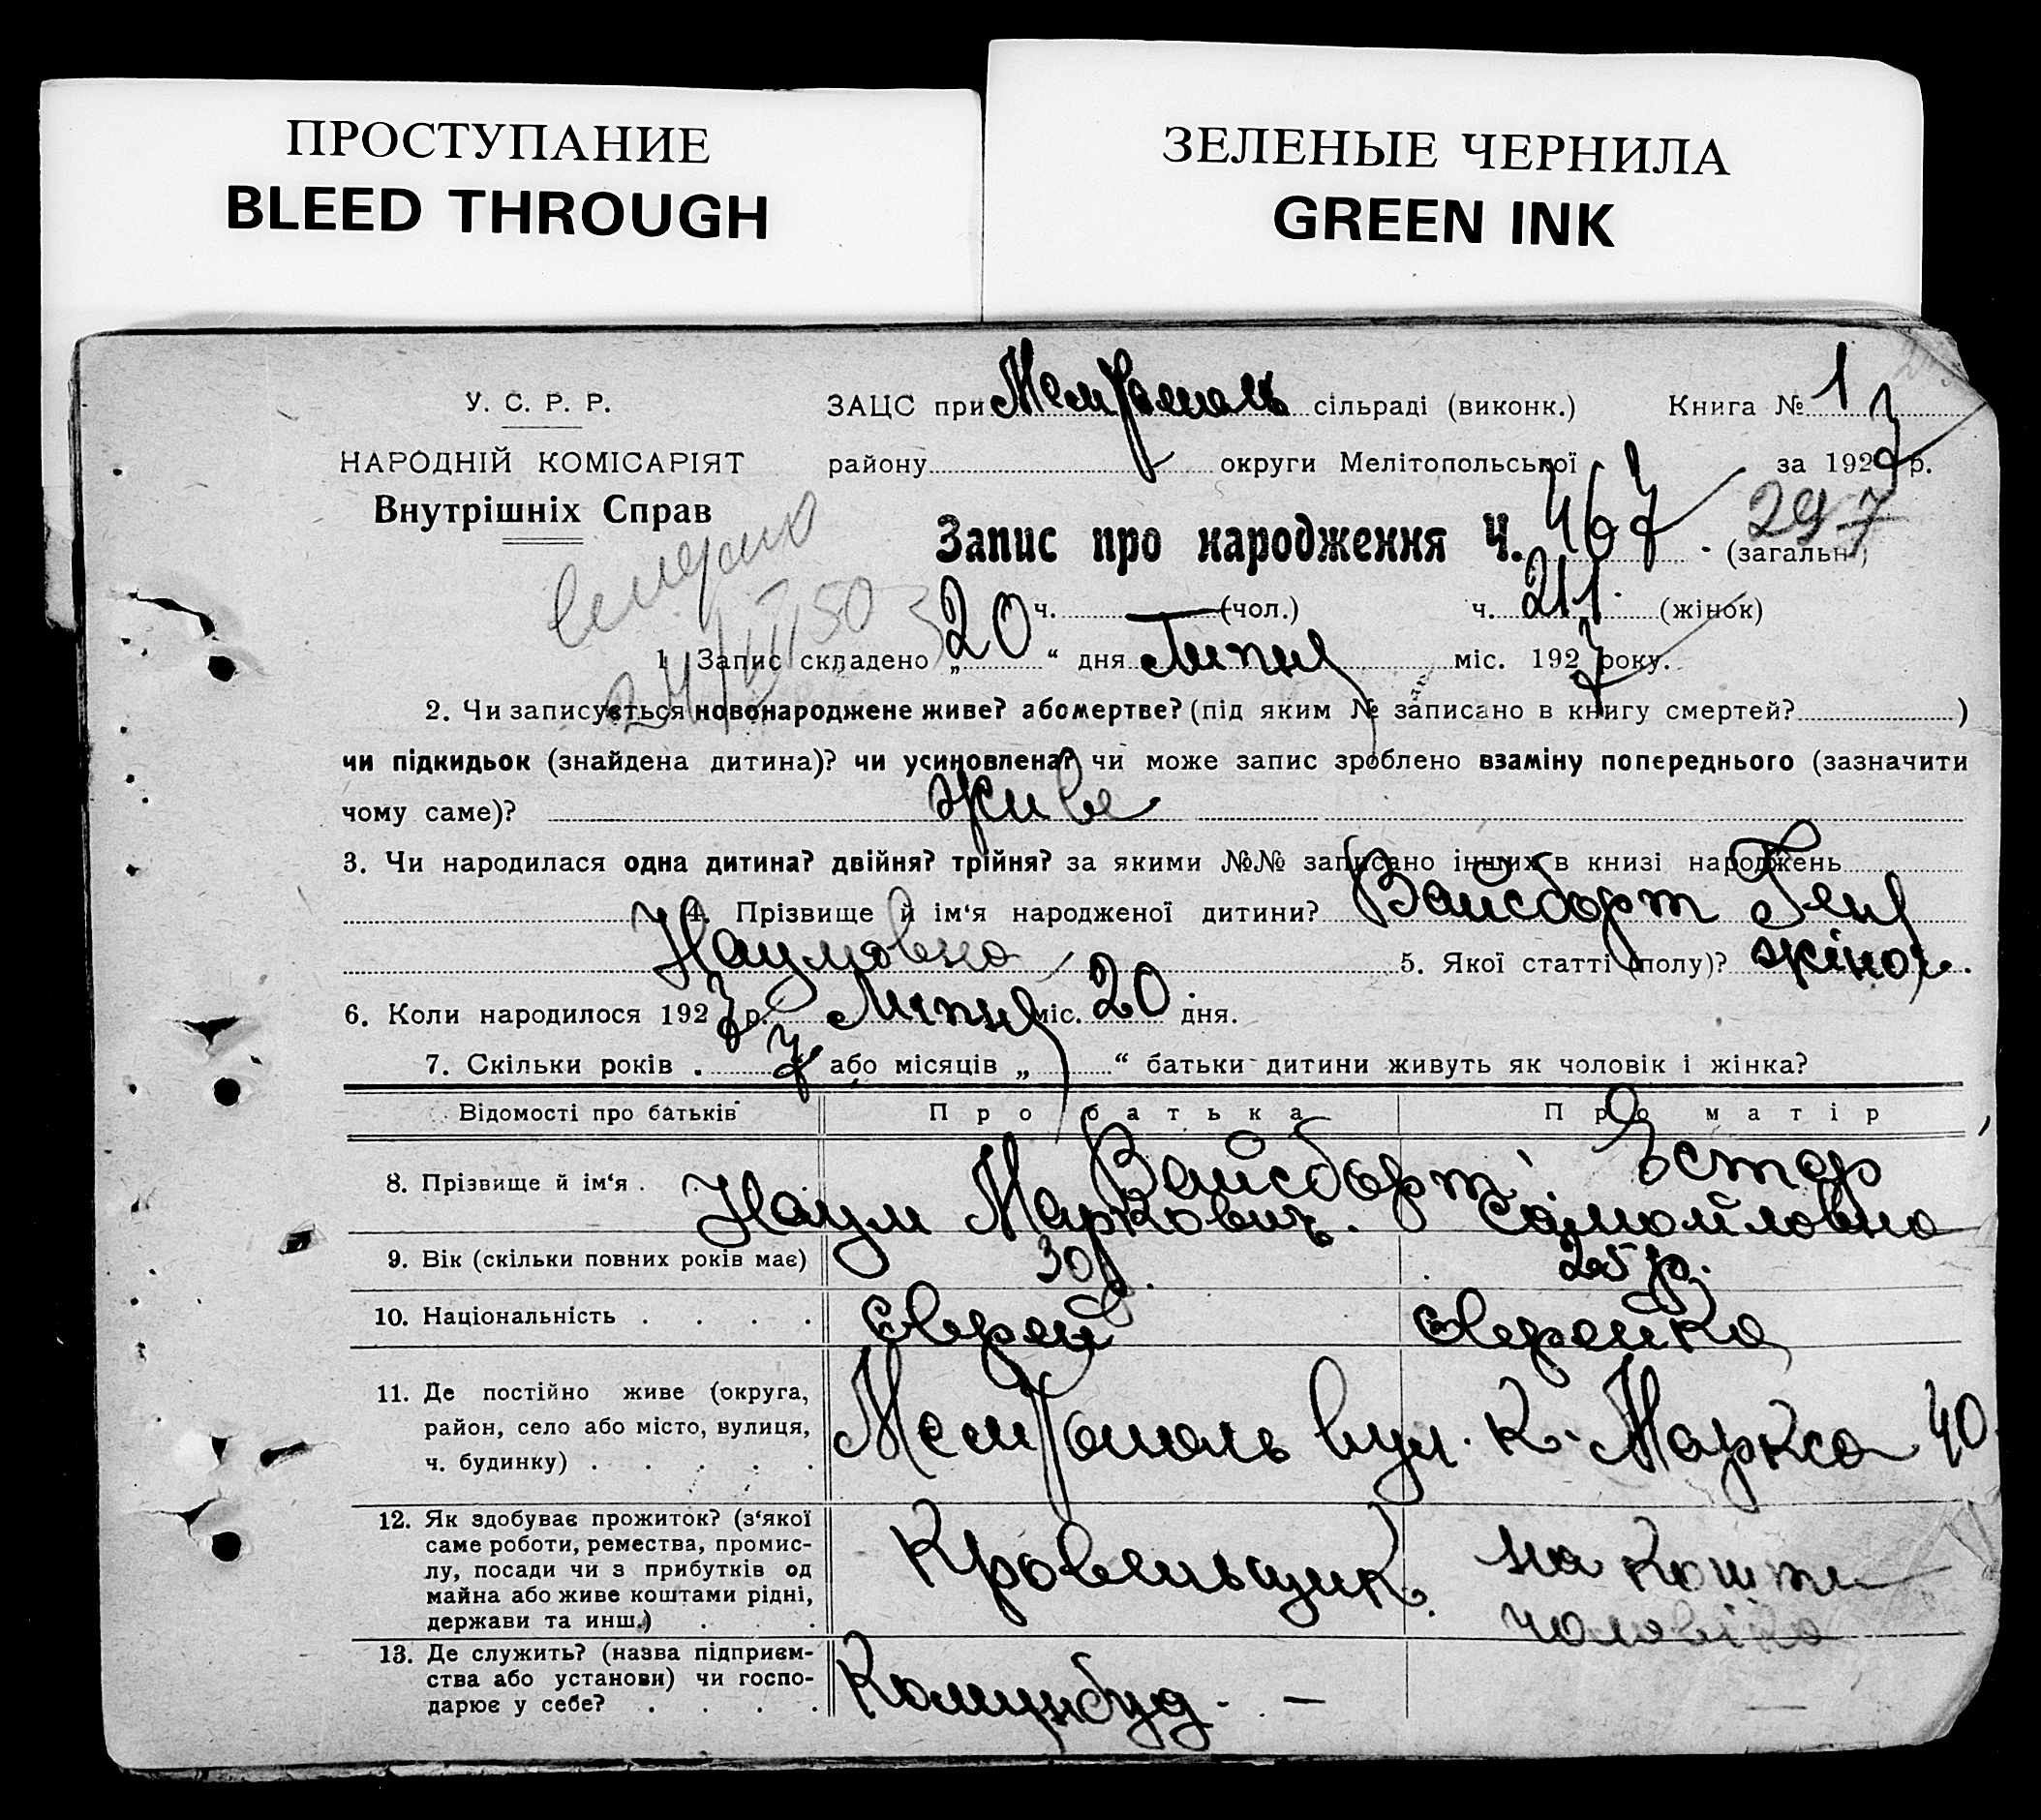 ПРОСТУПАНИЕ
BLEED THROUGH
ЗЕЛЕНЫЕ ЧЕРНИЛА
GREEN INK
У. С. Р. Р.
НАРОДНІЙ КОМІСАРІЯТ
Внутрішніх Справ
ЗАЦС при Мелітополь сільраді (виконк.) Книга № 1
району округи Мелітопольської за 1927 р.
297
Запис про народження Ч. 467 (загальн.)
ч. (чол.) ч. 211. (жінок)
1. Запис складено „20“ дня Липня міс. 1927 року.
2. Чи записується новонароджене живе? або мертве? (під яким № записано в книгу смертей? )
чи підкидьок (знайдена дитина)? чи усиновлена? чи може запис зроблено взаміну попереднього (зазначити
чому саме)? живе
3. Чи народилася одна дитина? двійня? трійня? за якими №№ записано інших в книзі народжень
4. Прізвище й ім‘я народженої дитини? Вайсборт Геня
Наумовна 5. Якої статті (полу)? жіноч.
6. Коли народилося 1927 р. Липня міс. 20 дня.
7. Скільки років 7 або місяців „ “ батьки дитини живуть як чоловік і жінка?
Відомості про батьків Про батька Про матір
8. Прізвище й ім‘я . Вайсборт Наум Маркович. Эстер Самойловна
9. Вік (скільки повних років має) 30 р. 25 р.
10. Національність . . . . Єврей єврейка
11. Де постійно живе (округа,
район, село або місто, вулиця,
ч. будинку) . . . . . Мелітополь вул. К. Маркса 40.
12. Як здобуває прожиток? (з‘якої
саме роботи, ремества, промис-
лу, посади чи з прибутків од
майна або живе коштами рідні,
держави та инш.) . . . Кровельщик. на кошти чоловіка
13. Де служить? (назва підприєм-
ства або установи) чи госпо-
дарює у себе? . . . . Комунбуд. —